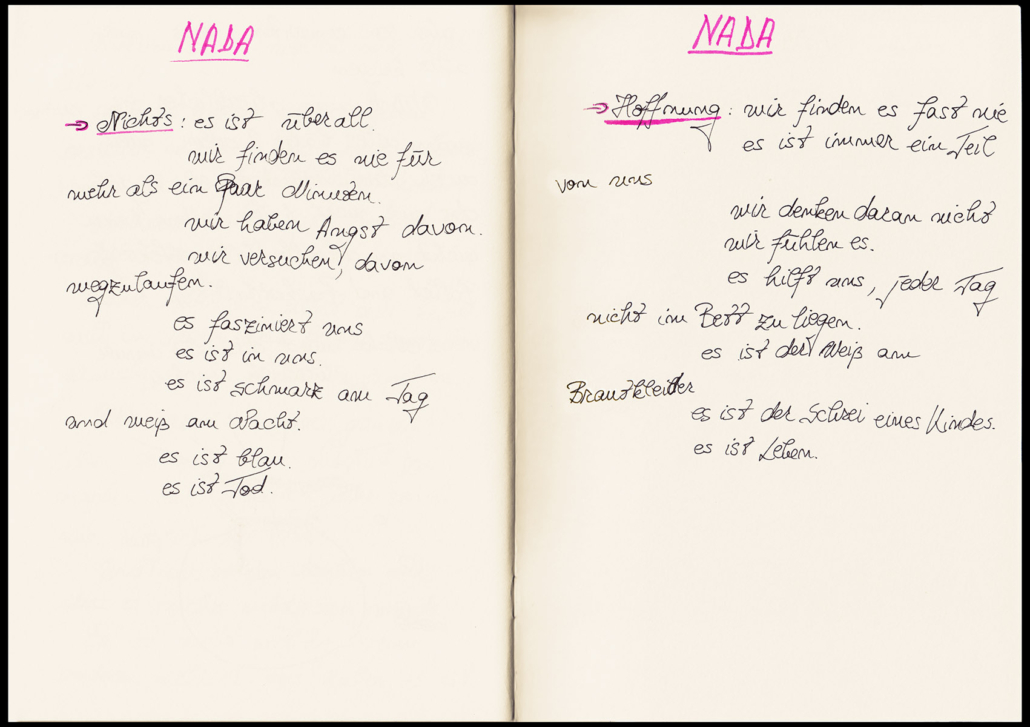 NADA
→ Nichts : es ist überall.
wir finden es nie für
mehr als ein Paar Minuten.
wir haben Angst davon.
wir versuchen, davon
wegzulaufen.
es fasziniert uns
es ist in uns.
es ist schwarz am Tag
und weiß am Nacht.
es ist blau.
es ist Tod.
NADA
→ Hoffnung : wir finden es fast nie
es ist immer ein Teil
von uns
wir denken daran nicht
wir fühlen es.
es hilft uns, jeder Tag
nicht im Bett zu liegen.
es ist der Weiß am
Brautkleider
es ist der Schrei eines Kindes.
es ist Leben.